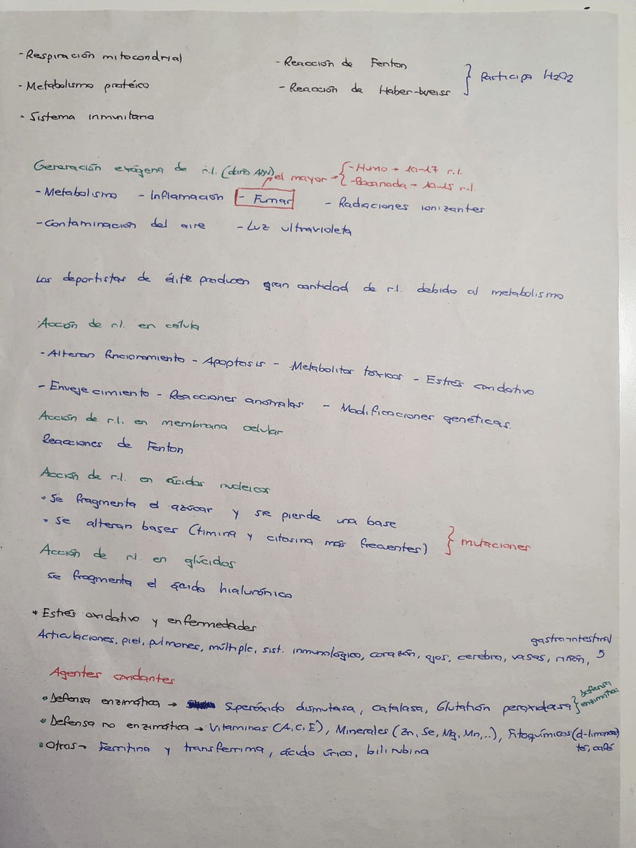 - Respiración mitocondrial
- Reacción de Fenton
- Metabolismo protéico
- Reacción de Haber-Weiss } Participa H2O2
- Sistema inmunitario
Generación exógena de r.l. (daño ADN) el mayor → { - Humo → 10-17 r.l.
- Bocanada → 10-15 r.l.
- Metabolismo - Inflamación - Fumar - Radiaciones ionizantes
- Contaminación del aire - Luz ultravioleta
Los deportistas de élite producen gran cantidad de r.l. debido al metabolismo
Acción de r.l. en célula
- Alteran funcionamiento - Apoptosis - Metabolitos tóxicos - Estrés oxidativo
- Envejecimiento - Reacciones anomalas - Modificaciones genéticas
Acción de r.l. en membrana celular
Reacciones de Fenton
Acción de r.l. en ácidos nucleicos
• Se fragmenta el azúcar y se pierde una base
• Se alteran bases (timina y citosina más frecuentes) } mutaciones
Acción de r.l. en glúcidos
Se fragmenta el ácido hialurónico
* Estrés oxidativo y enfermedades
gastrointestinal
Articulaciones, piel, pulmones, múltiple, sist. inmunológico, corazón, ojos, cerebro, vasos, riñón,
Agentes oxidantes
• Defensa enzimática → Superóxido dismutasa, catalasa, Glutatión peroxidasa } defensa enzimática
• Defensa no enzimática → Vitaminas (A, C, E), Minerales (Zn, Se, Mg, Mn,..), Fitoquímicos (d-limoneno)
té, café
• Otros → Ferritina y transferrina, ácido úrico, bilirrubina